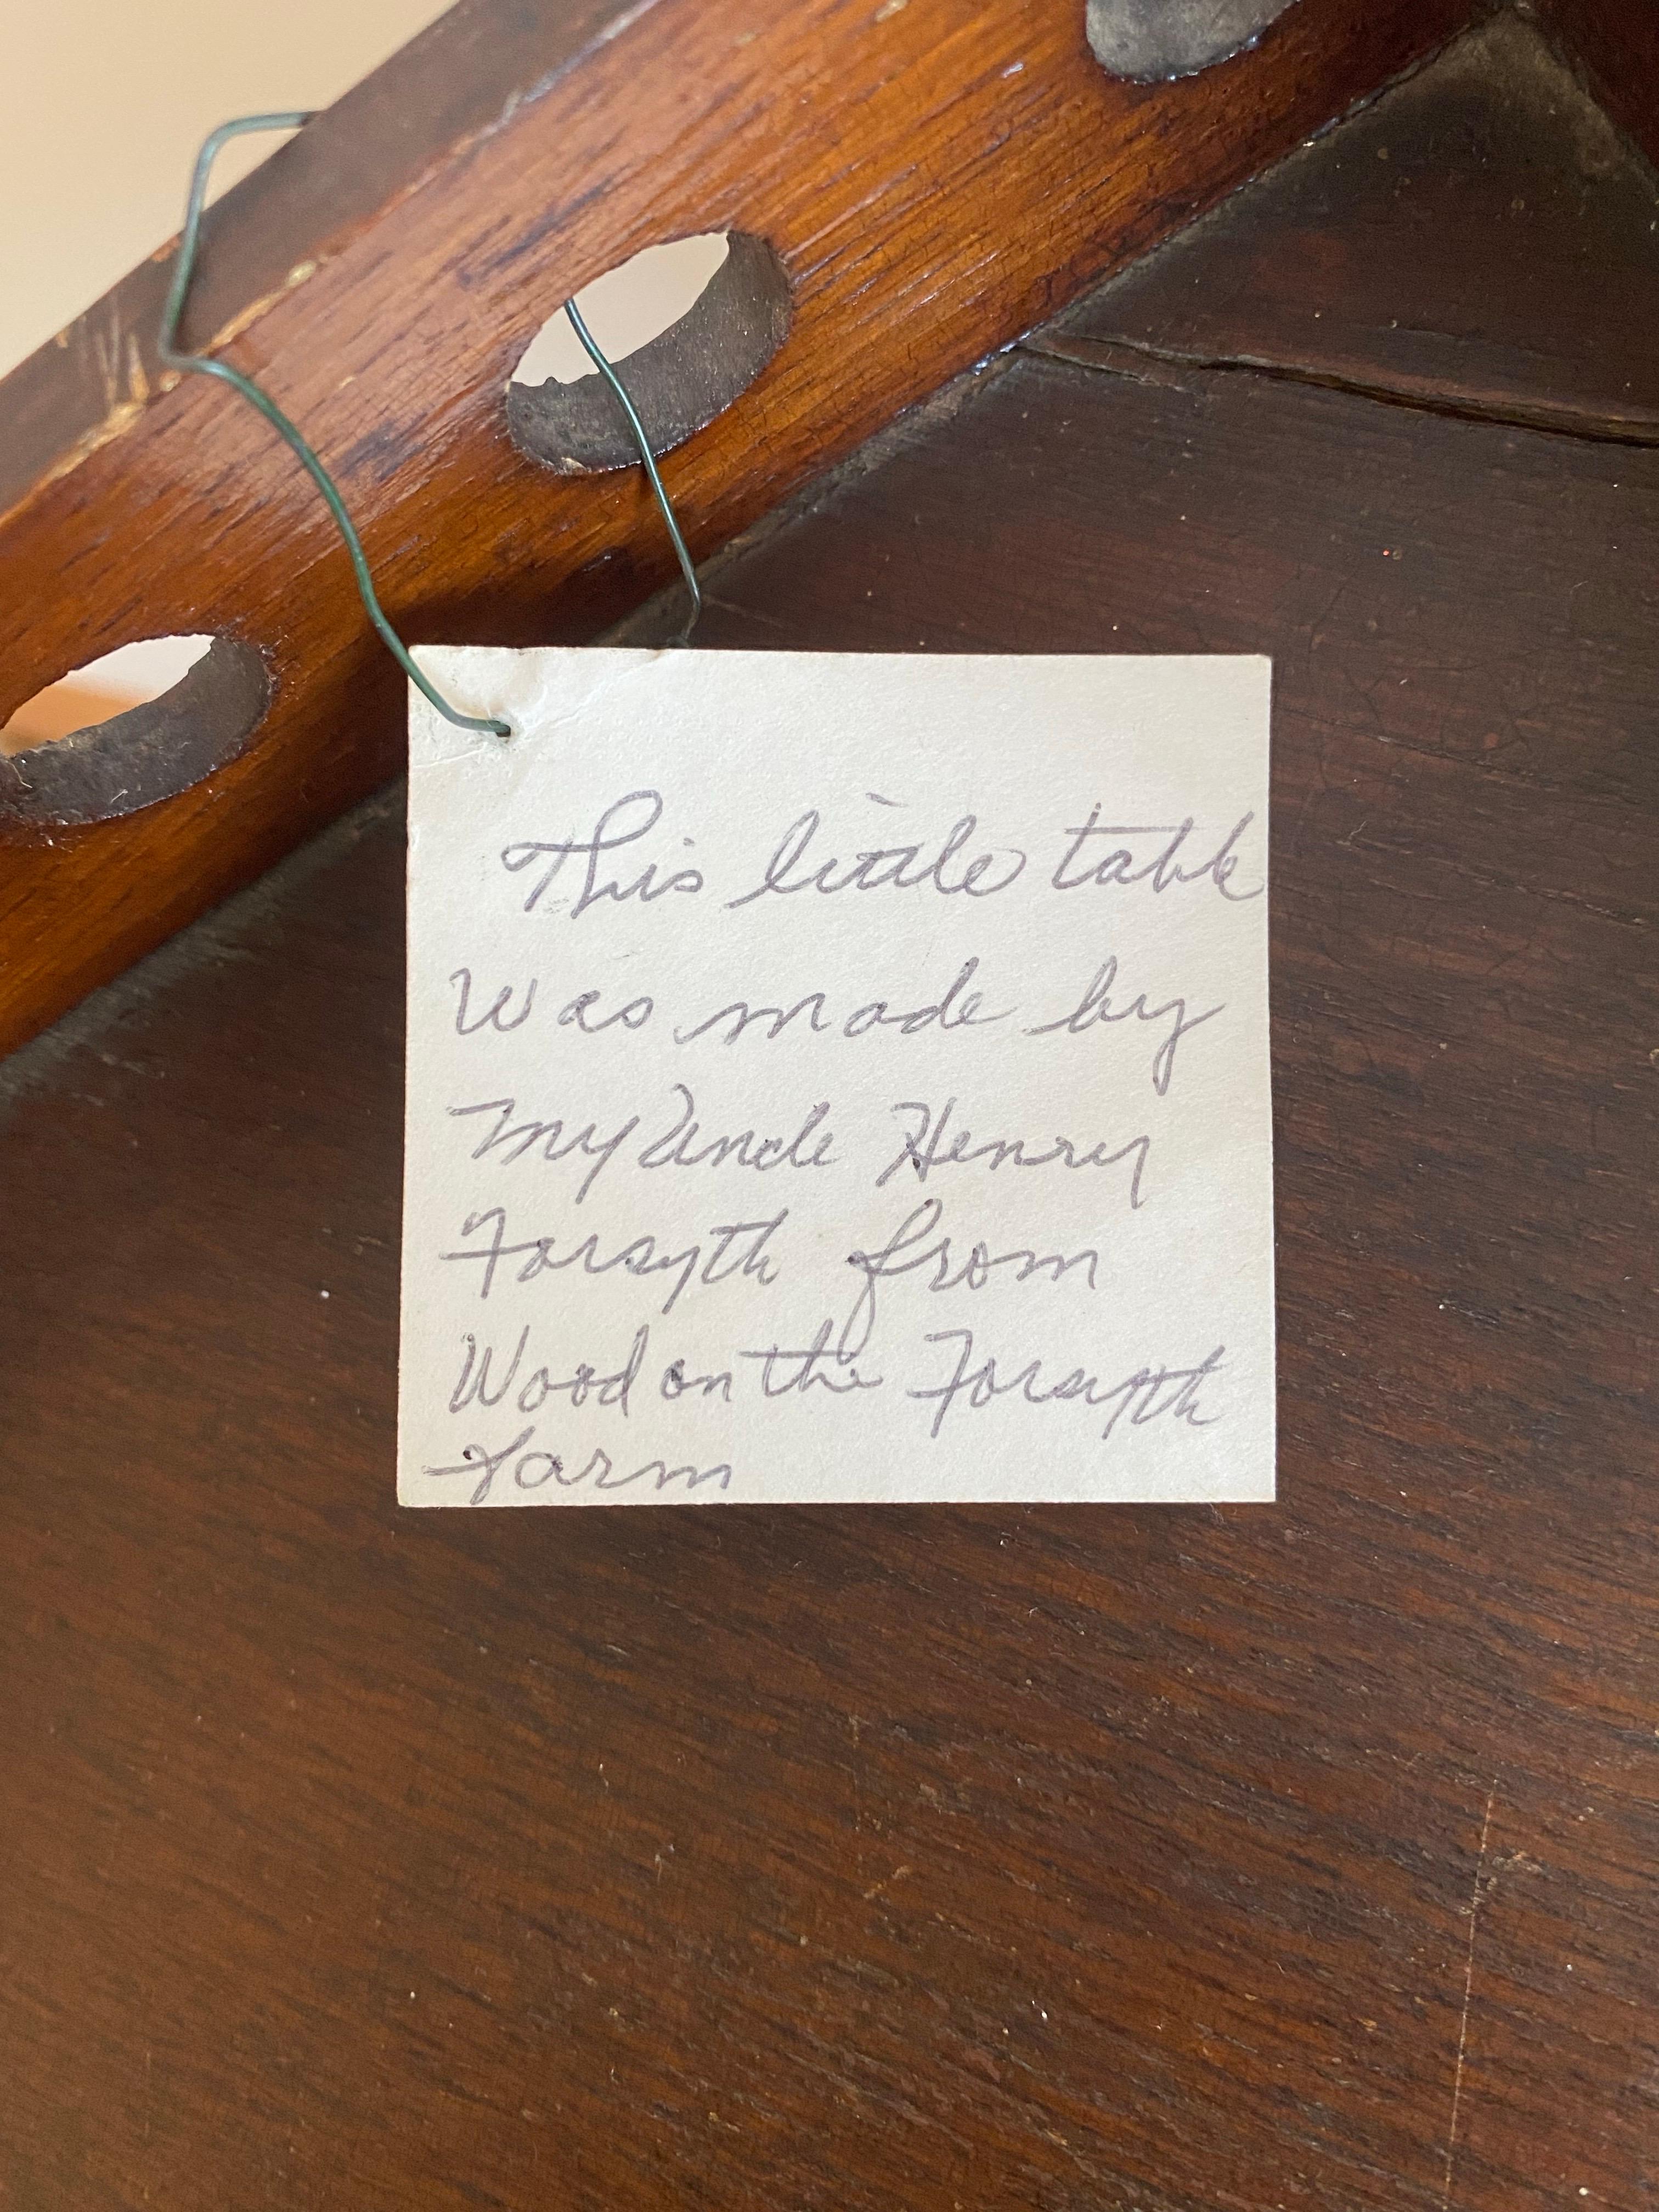 This little table
Was made by
My Uncle Henry
Forsyth from
Wood on the Forsyth
Farm